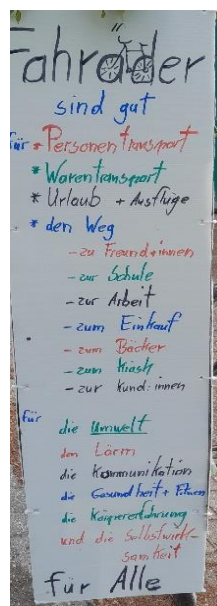 Fahräder
sind gut
für * Personentransport
* Warentransport
* Urlaub + Ausflüge
* den Weg
- zu Freund*innen
- zur Schule
- zur Arbeit
- zum Einkauf
- zum Bäcker
- zum Kiosk
- zur Kund:innen
für
die Umwelt
den Lärm
die Kommunikation
die Gesundheit + Fitness
die Körpererfahrung
und die Selbstwirk-
samkeit
für Alle